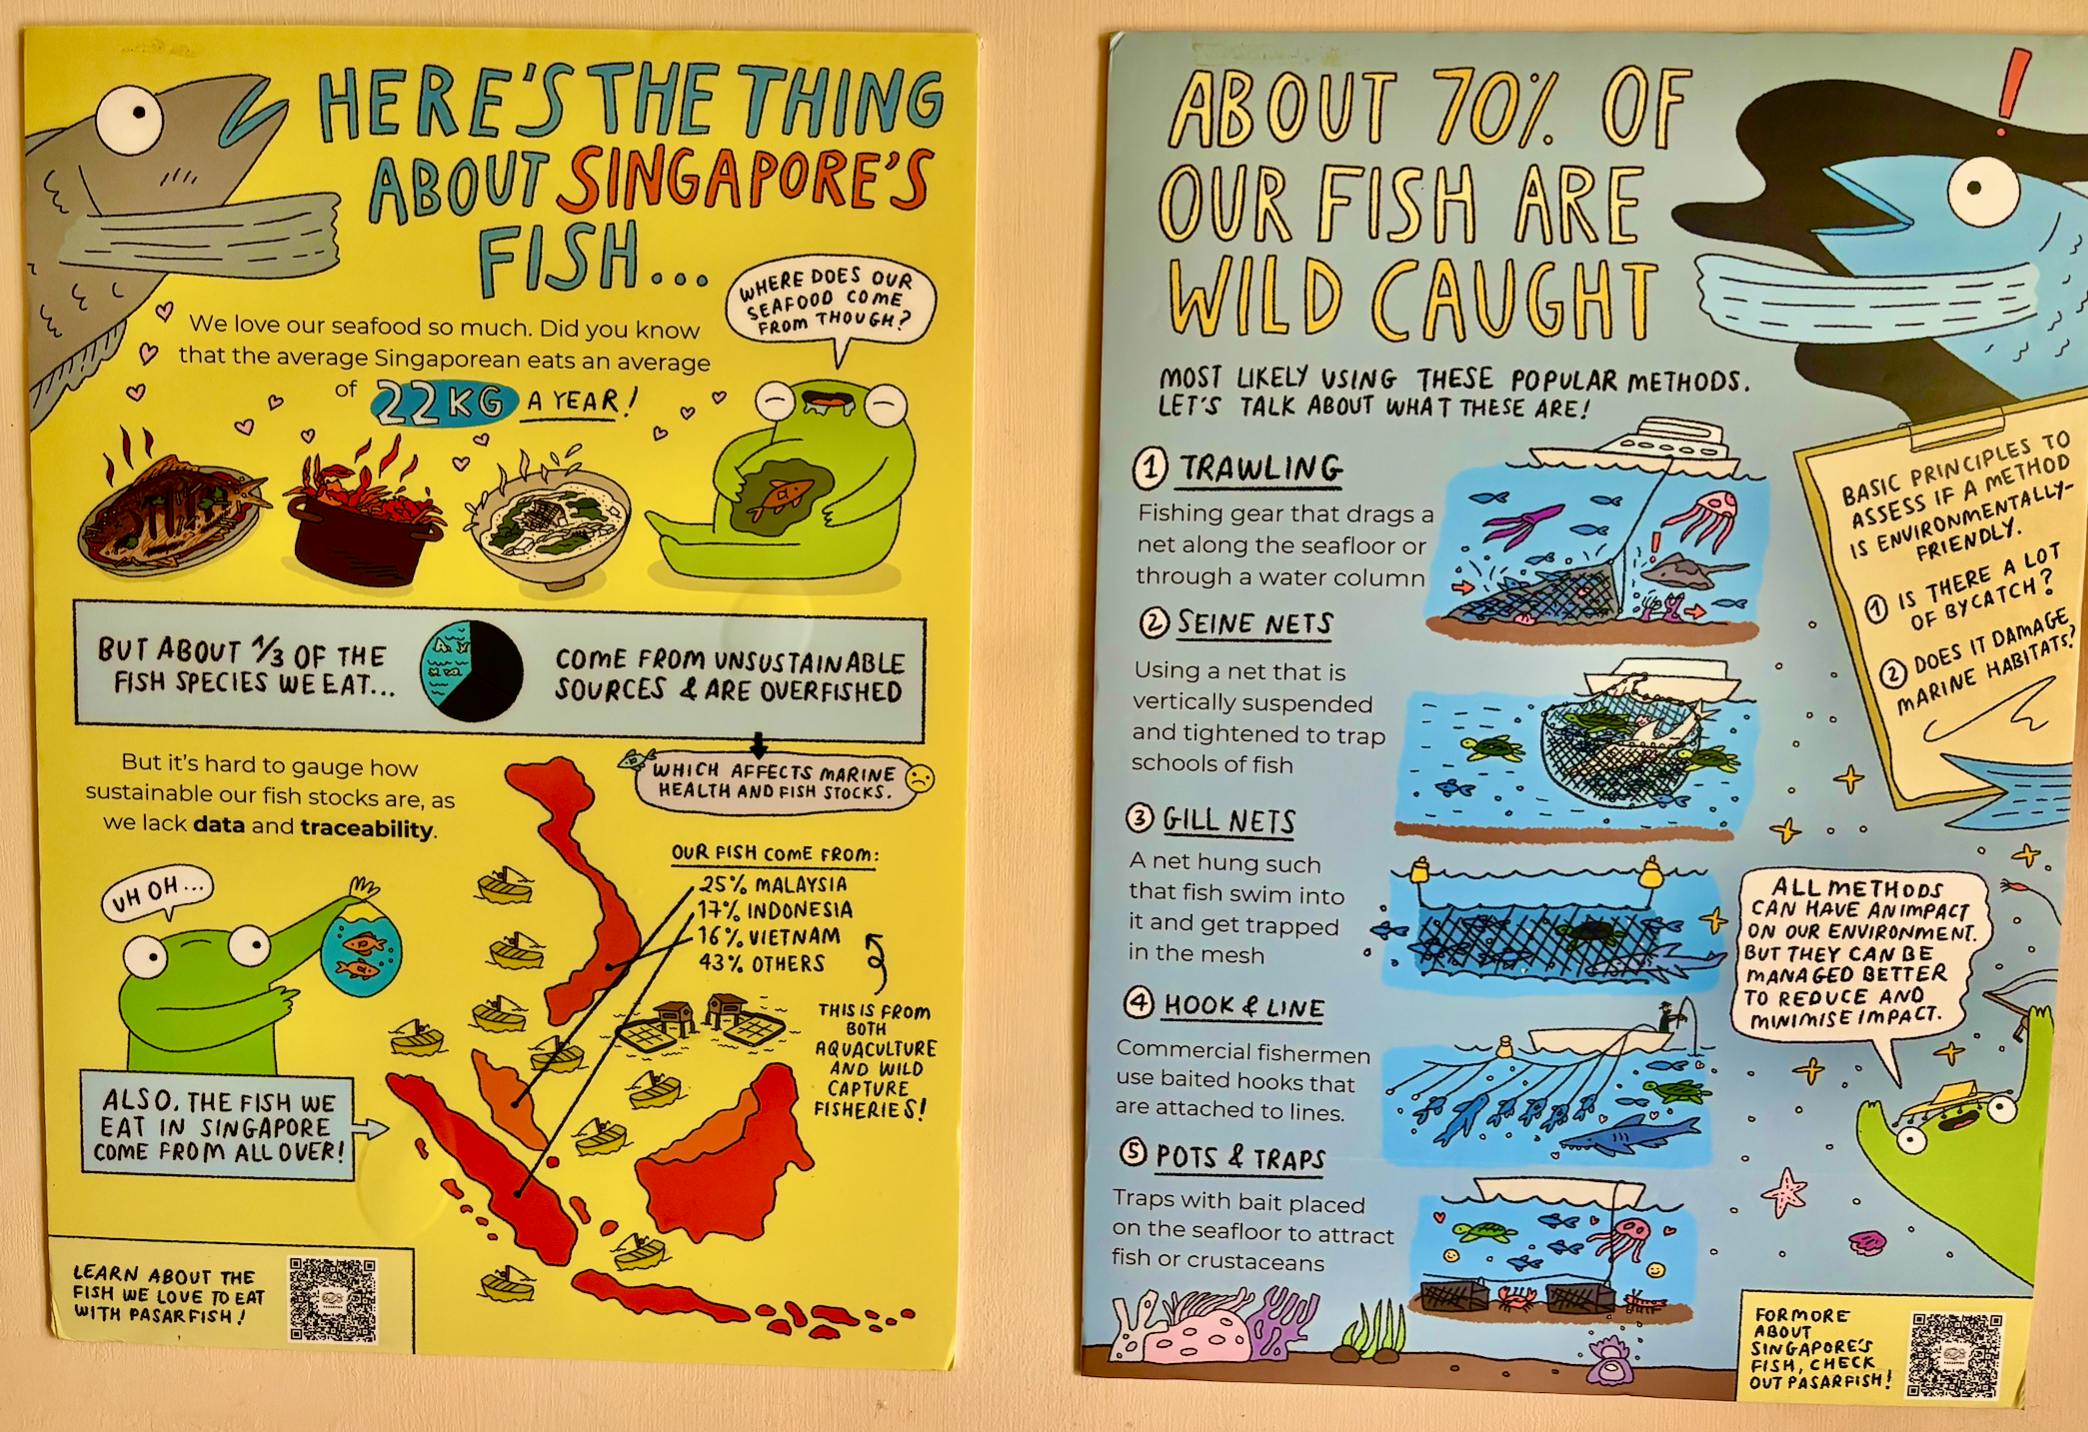 HERE'S THE THING
ABOUT SINGAPORE'S
FISH...
We love our seafood so much. Did you know
that the average Singaporean eats an average
of 22KG A YEAR!
WHERE DOES OUR
SEAFOOD COME
FROM THOUGH?
BUT ABOUT 1/3 OF THE
FISH SPECIES WE EAT...
COME FROM UNSUSTAINABLE
SOURCES & ARE OVERFISHED
WHICH AFFECTS MARINE
HEALTH AND FISH STOCKS.
But it's hard to gauge how
sustainable our fish stocks are, as
we lack data and traceability.
UH OH...
OUR FISH COME FROM:
25% MALAYSIA
17% INDONESIA
16% VIETNAM
43% OTHERS
THIS IS FROM
BOTH
AQUACULTURE
AND WILD
CAPTURE
FISHERIES!
ALSO, THE FISH WE
EAT IN SINGAPORE
COME FROM ALL OVER!
LEARN ABOUT THE
FISH WE LOVE TO EAT
WITH PASARFISH!
ABOUT 70% OF
OUR FISH ARE
WILD CAUGHT
MOST LIKELY USING THESE POPULAR METHODS.
LET'S TALK ABOUT WHAT THESE ARE!
1 TRAWLING
Fishing gear that drags a
net along the seafloor or
through a water column
2 SEINE NETS
Using a net that is
vertically suspended
and tightened to trap
schools of fish
3 GILL NETS
A net hung such
that fish swim into
it and get trapped
in the mesh
4 HOOK & LINE
Commercial fishermen
use baited hooks that
are attached to lines.
5 POTS & TRAPS
Traps with bait placed
on the seafloor to attract
fish or crustaceans
!
BASIC PRINCIPLES TO
ASSESS IF A METHOD
IS ENVIRONMENTALLY-
FRIENDLY.
1 IS THERE A LOT
OF BYCATCH?
2 DOES IT DAMAGE
MARINE HABITATS?
ALL METHODS
CAN HAVE AN IMPACT
ON OUR ENVIRONMENT.
BUT THEY CAN BE
MANAGED BETTER
TO REDUCE AND
MINIMISE IMPACT.
FOR MORE
ABOUT
SINGAPORE'S
FISH, CHECK
OUT PASARFISH!